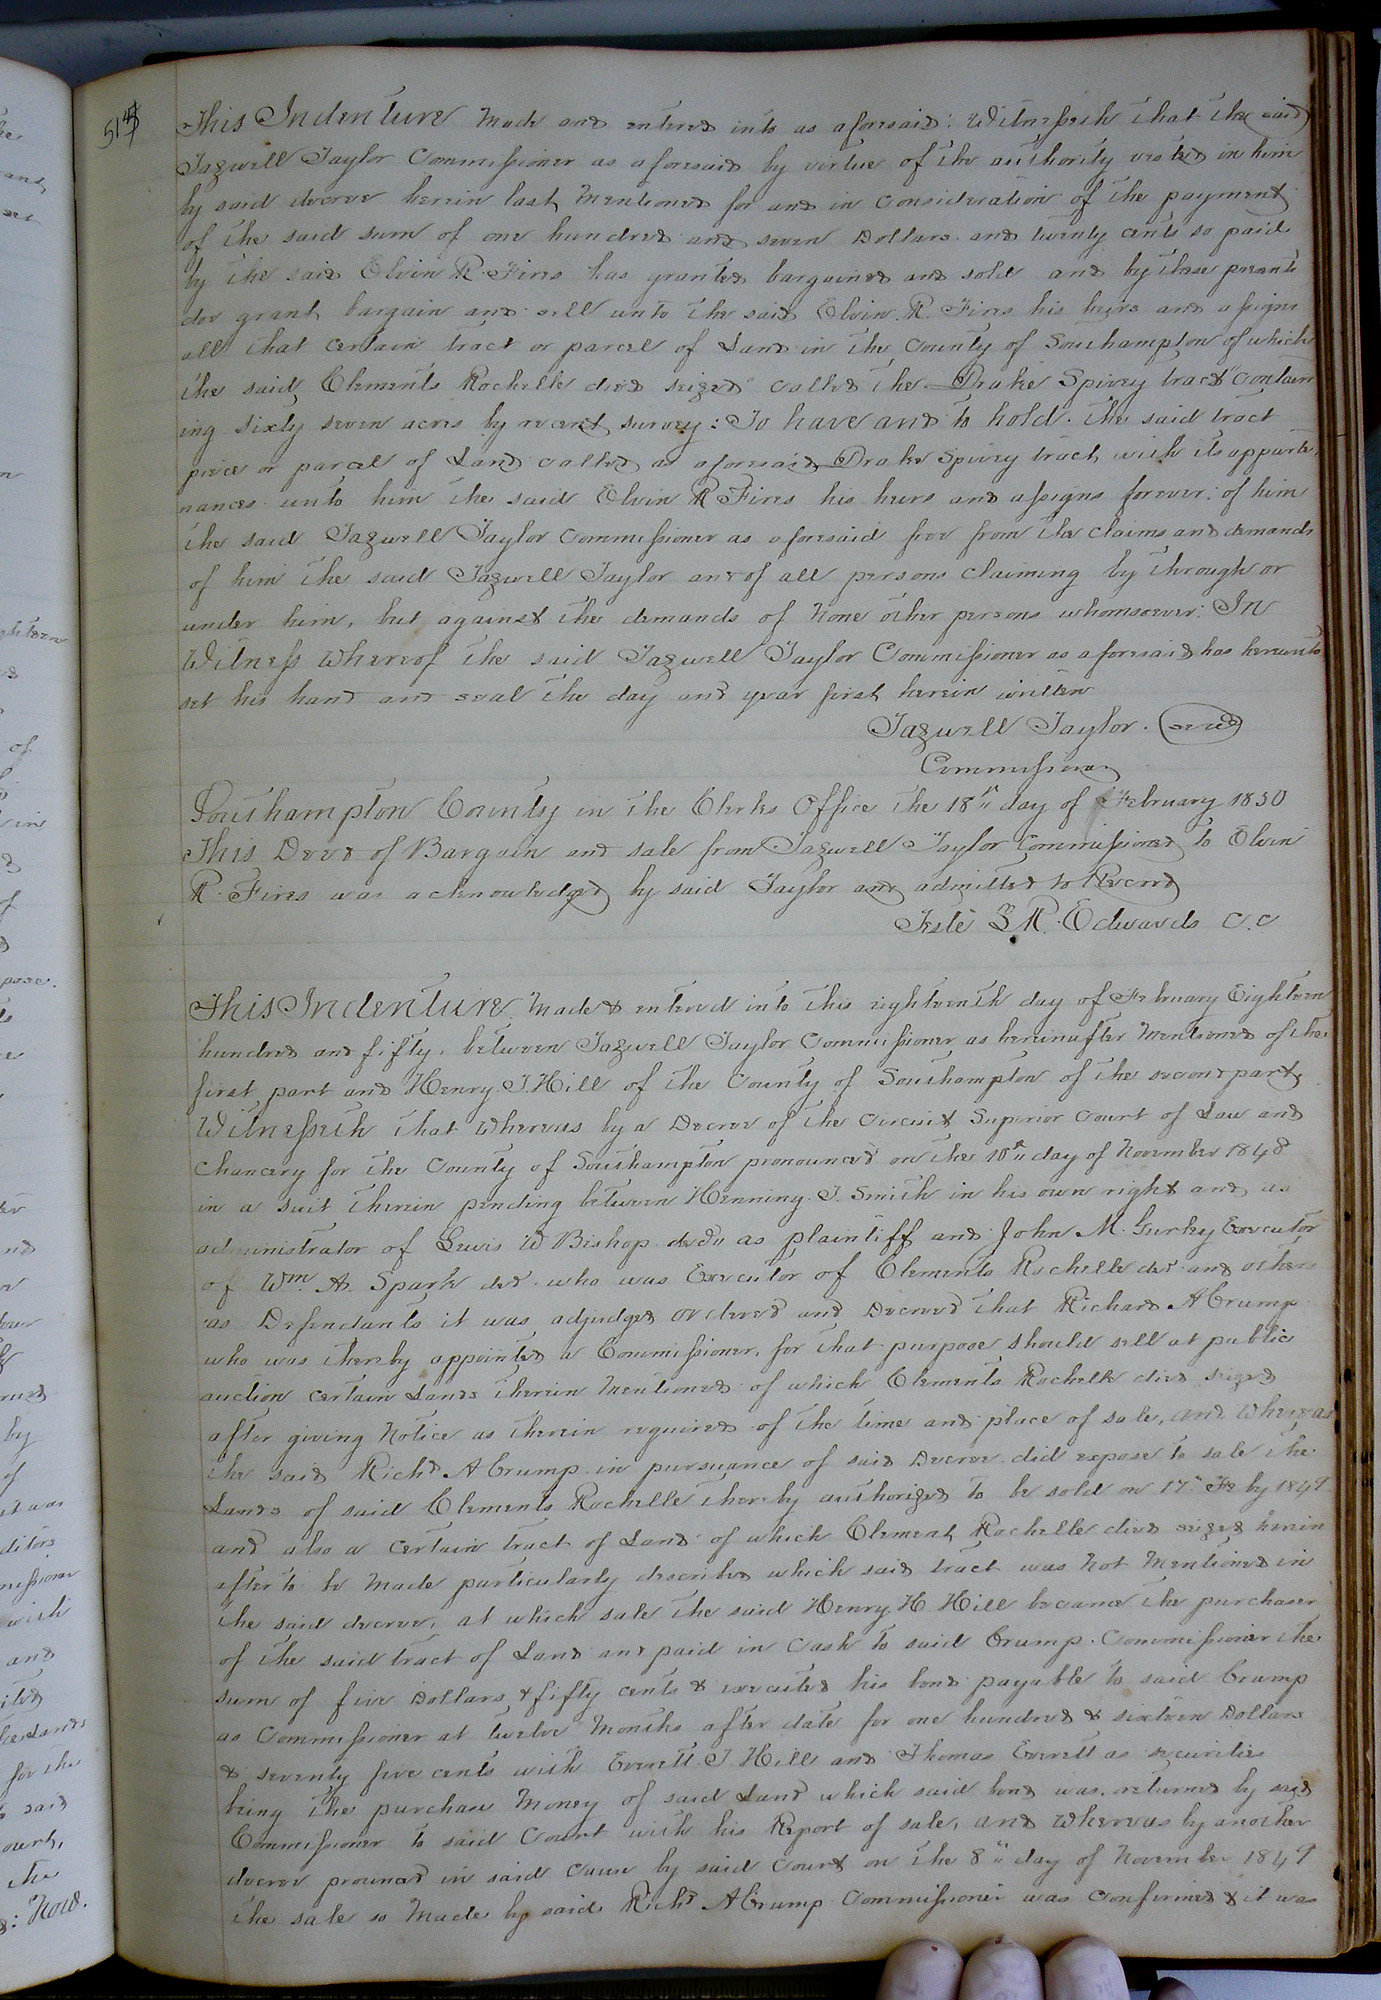 514
This Indenture Made and entered into as aforesaid: Witnesseth that the said
Tazwell Taylor Commissioner as aforesaid by virtue of the authority vested in him
by said decree herein last Mentioned for and in consideration of the payment
of the said sum of one hundred and seven Dollars and twenty cents so paid
by the said Elvin R. Fires has granted bargained and sold and by these presents
doe grant bargain and sell unto the said Elvin R. Fires his heirs and assigns
all that certain tract or parcel of Land in the County of Southampton of which
the said Clements Rochelle died seized called the Drake Spivey tract contain
ing sixty seven acres by recent survey: To have and to hold the said tract
piece or parcel of Land called as aforesaid Drake Spivey tract with its apparte,
nances unto him the said Elvin R Fires his heirs and assigns forever: of him
the said Tazwell Taylor Commissioner as aforesaid free from the claims and demands
of him the said Tazwell Taylor and of all persons claiming by through or
under him, but against the demands of None other persons whomsoever: In
Witness Whereof the said Tazwell Taylor Commissioner as aforesaid has hereunto
set his hand and seal the day and year first herein written
Tazwell Taylor. seal
Commissioner
Southampton County in the Clerks Office the 18th day of February 1850
This Deed of Bargain and sale from Tazwell Taylor Commissioner to Elvin
R. Fires was acknowledged by said Taylor and admitted to Record
Teste L R. Edwards C.C
This Indenture Made & entered into this eighteenth day of February Eighteen
hundred and fifty. between Tazwell Taylor Commissioner as hereinafter Mentioned of the
first part and Henry J. Hill of the County of Southampton of the second part,
Witnesseth that Whereas by a Decree of the Circuit Superior Court of Law and
Chancery for the County of Southampton pronounced on the 10th day of November 1848
in a suit therein pending between Henning J. Smith in his own right and as
administrator of Lewis W Bishop decd as plaintiff and John M. Gurley Executor
of Wm. A. Spark decd who was Executor of Clements Rochelle decd and others
as Defendants it was adjudged ordered and Decreed that Richard A Crump
who was thereby appointed a Commissioner, for that purpose should sell at public
auction certain Lands therein Mentioned of which Clements Rochelle died seized
after giving Notice as therein required of the time and place of sale, and Whereas
the said Richd A Crump in pursuance of said Decree did expose to sale the
Lands of said Clements Rochelle thereby authorized to be sold on 17th Feby 1849
and also a certain tract of Land of which Clement Rochelle died seized herein
after to be Made particularly described which said tract was Not Mentioned in
the said decree, at which sale the said Henry H Hill became the purchaser
of the said tract of Land and paid in Cash to said Crump Commissioner the
sum of five Dollars & fifty cents & executed his bond payable to said Crump
as Commissioner at twelve Months after date for one hundred & sixteen Dollars
& seventy five cents with Everett J. Hill and Thomas Everett as securities
being the purchase Money of said Land which said bond was returned by said
Commissioner to said Court with his Report of sale, and Whereas by another
decree prounced in said cause by said Court on the 8th day of November 1849
the sale so Made by said Richd A Crump Commissioner was confirmed & it was